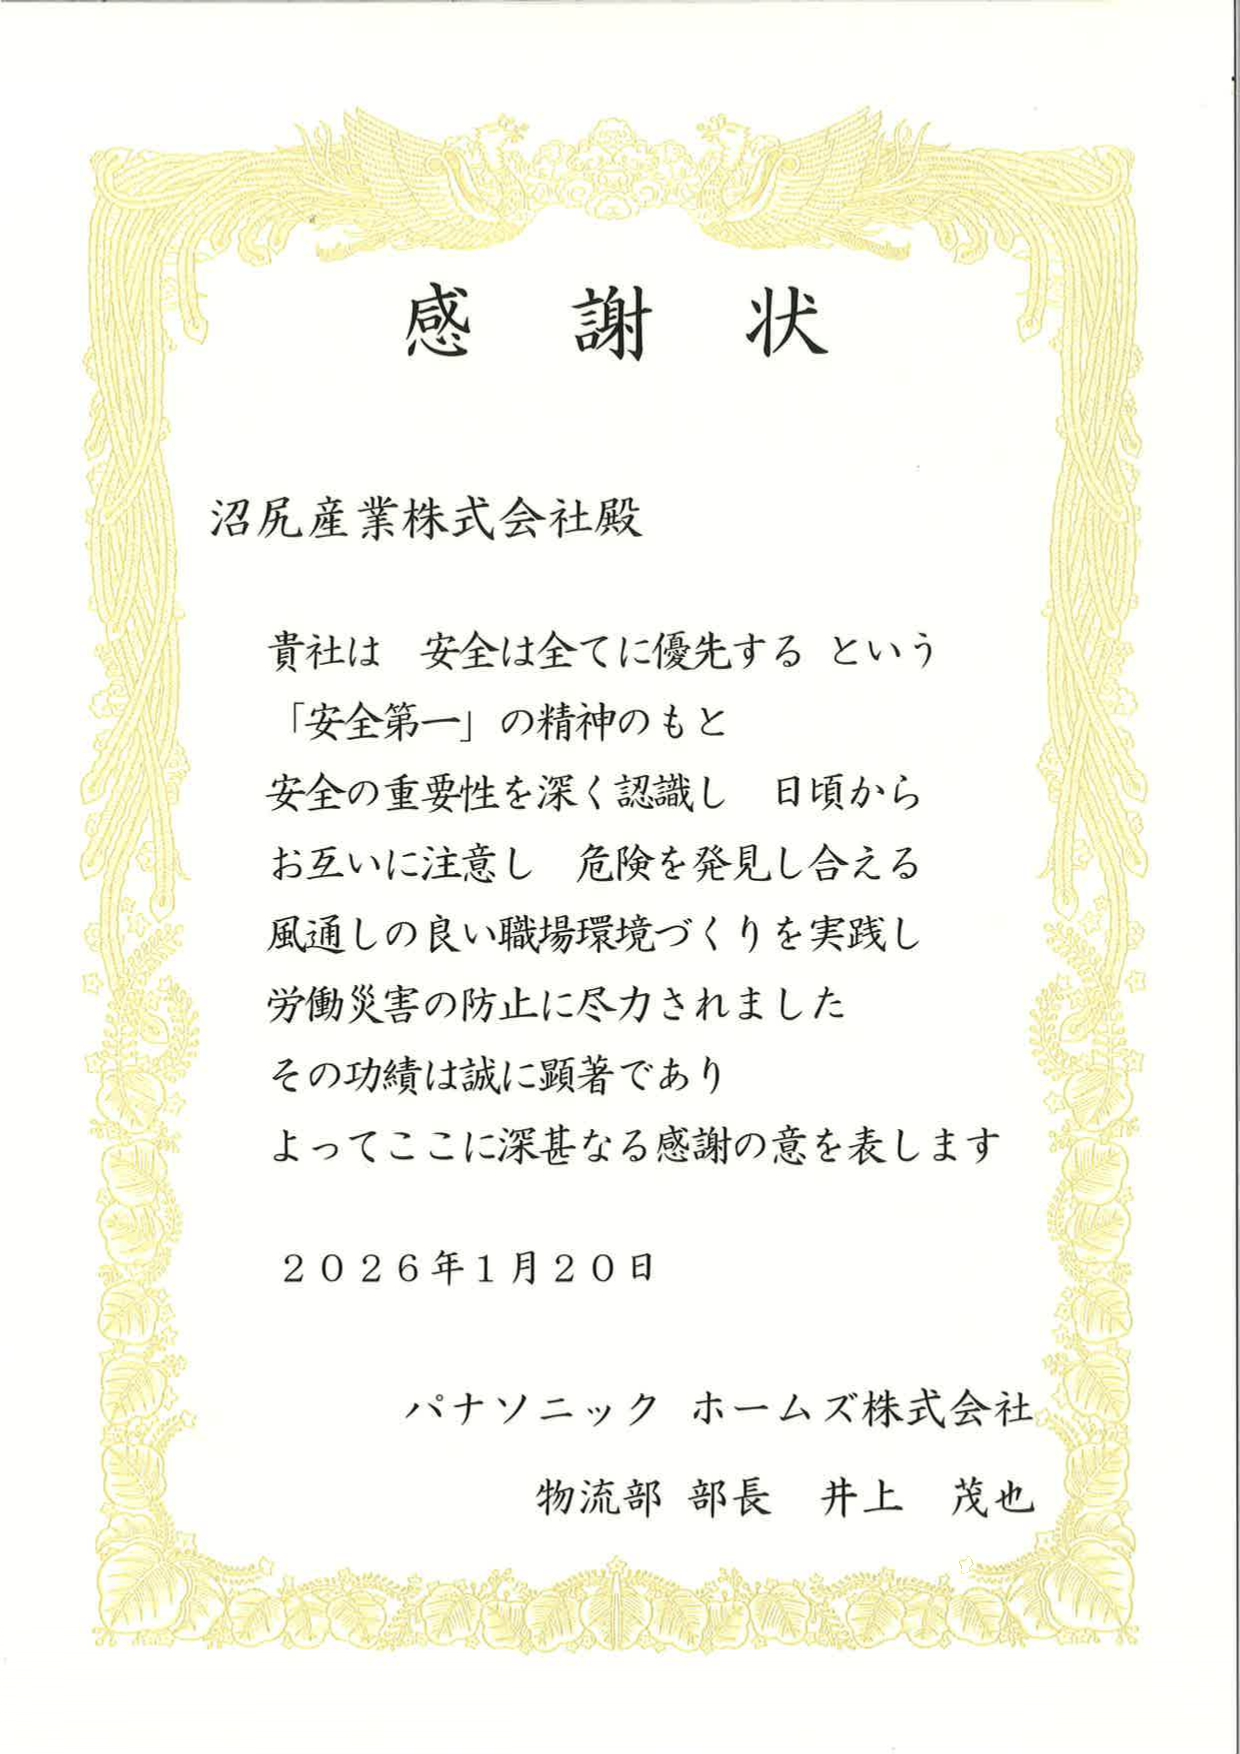 感　謝　状
沼尻産業株式会社殿
貴社は　安全は全てに優先する という
「安全第一」の精神のもと
安全の重要性を深く認識し　日頃から
お互いに注意し　危険を発見し合える
風通しの良い職場環境づくりを実践し
労働災害の防止に尽力されました
その功績は誠に顕著であり
よってここに深甚なる感謝の意を表します
２０２６年１月２０日
パナソニック ホームズ株式会社
物流部 部長　井上　茂也